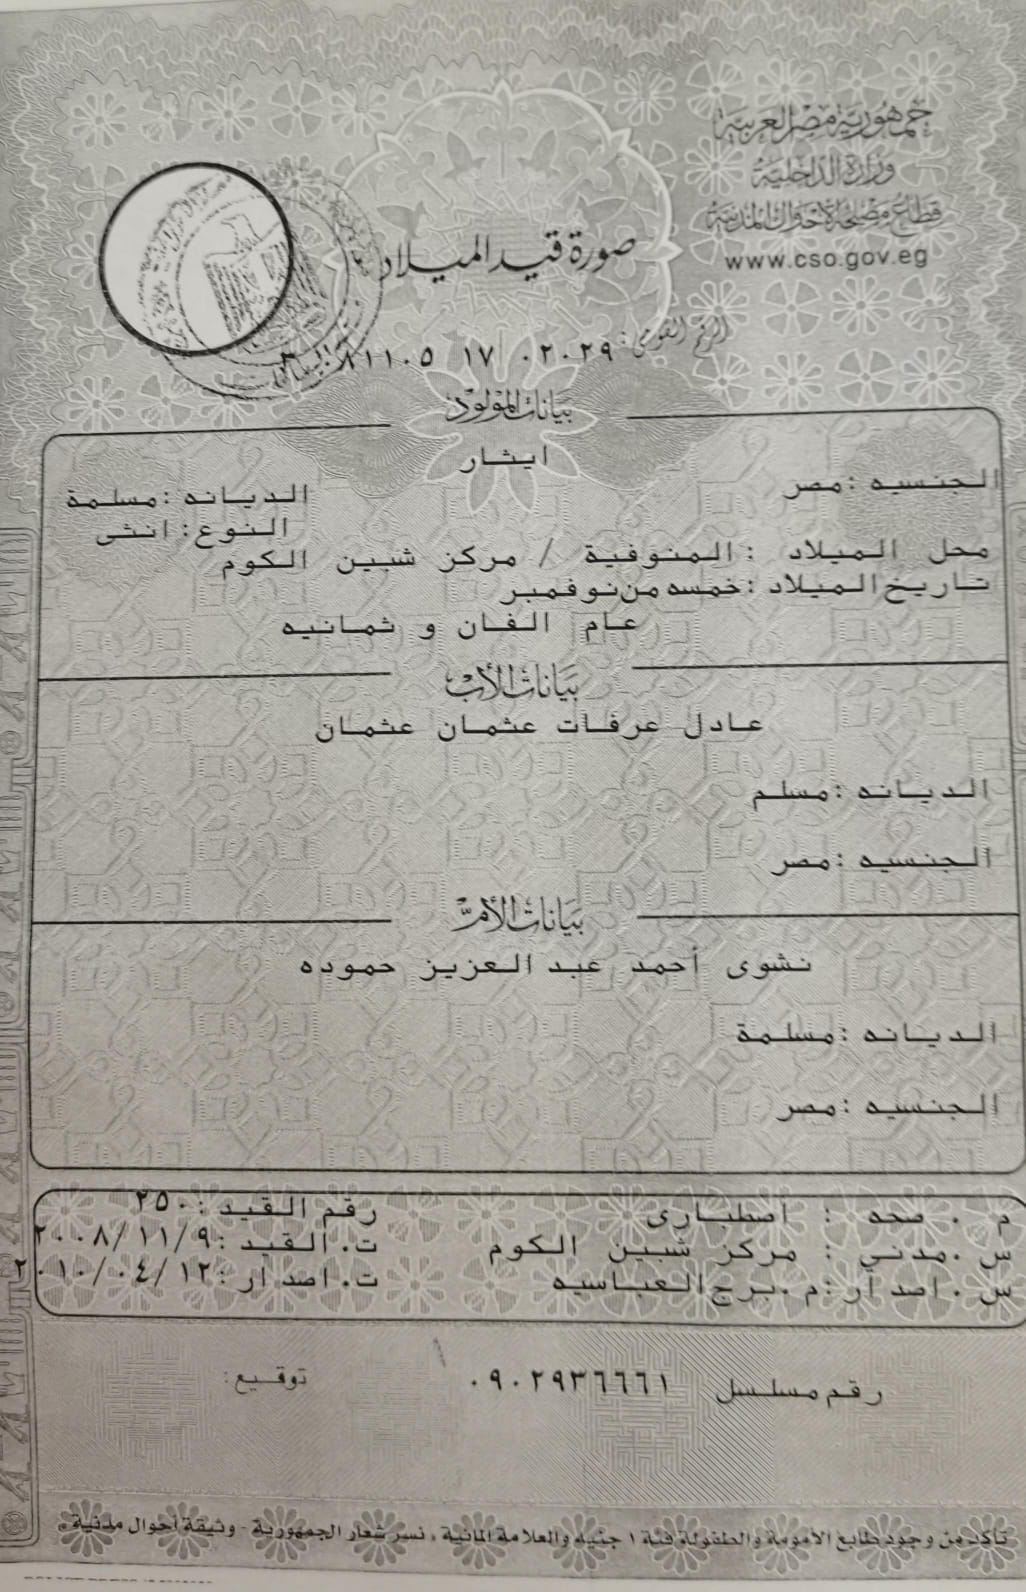 جمهورية مصر العربية
وزارة الداخلية
قطاع مصلحة الأحوال المدنية
www.cso.gov.eg
صورة قيد الميلاد
الرقم القومى: ٨١١٠٥ ١٧ ٠٢٠٢٩
بيانات المولود
ايثار
الجنسيه : مصر الديانه : مسلمة
النوع : انثى
محل الميلاد : المنوفية / مركز شبين الكوم
تاريخ الميلاد : خمسه من نوفمبر
عام الفان و ثمانيه
بيانات الأب
عادل عرفات عثمان عثمان
الديانه : مسلم
الجنسيه : مصر
بيانات الأم
نشوى أحمد عبد العزيز حموده
الديانه : مسلمة
الجنسيه : مصر
م . صحه : اصطبارى رقم القيد : ٢٥٠
س . مدني : مركز شبين الكوم ت. القيد : ٢٠٠٨/١١/٩
س . اصدار : م . برج العباسيه ت. اصدار : ٢٠١٠/٠٤/١٢
رقم مسلسل ٠٩٠٢٩٣٦٦٦١ توقيع :
تأكد من وجود طابع الأمومة والطفولة فئة ١ جنيه والعلامة المائية ، نسر شعار الجمهورية - وثيقة أحوال مدنية ،